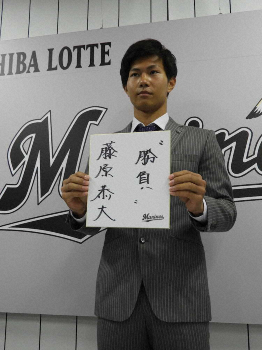 HIBA LOTTE
Marines
〝勝負〟
藤原恭大
Marines